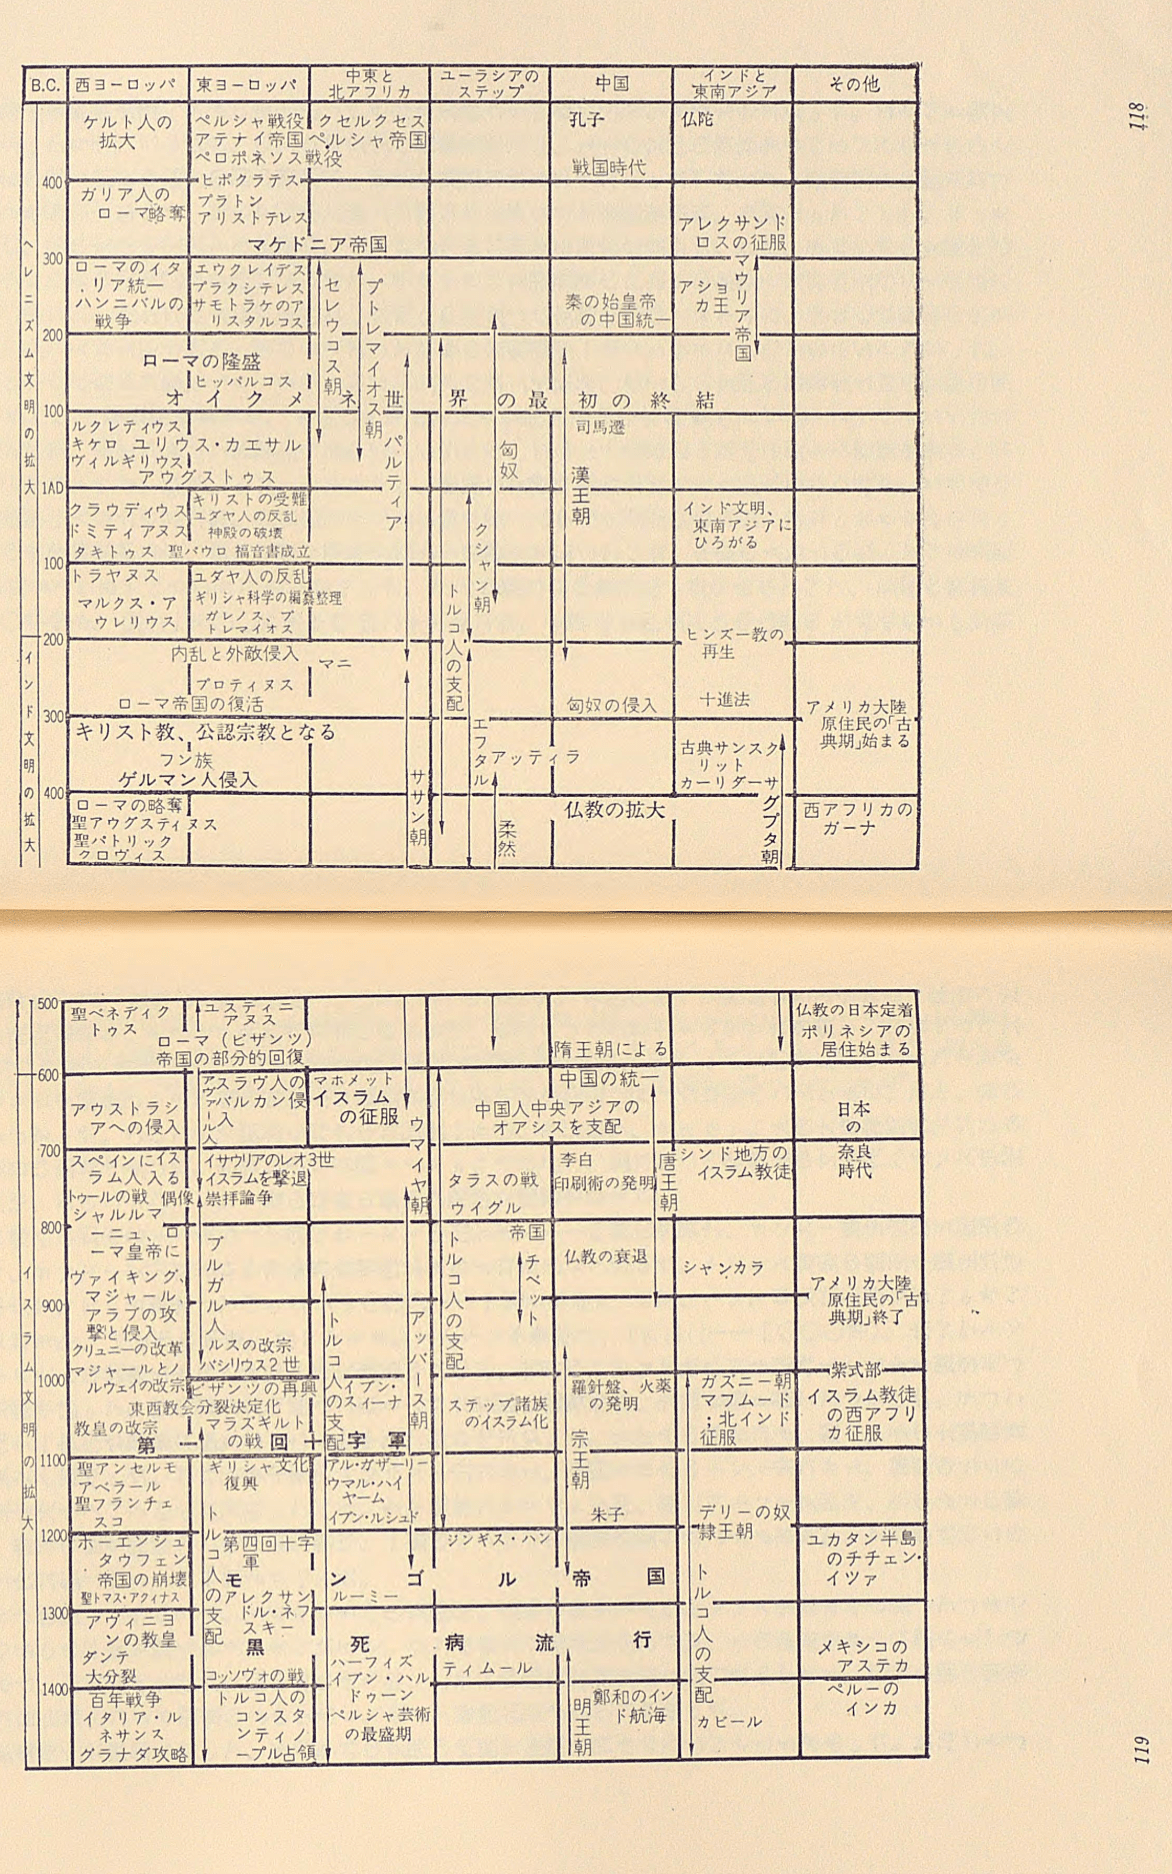 118
B.C.
西ヨーロッパ
東ヨーロッパ
中東と
北アフリカ
ユーラシアの
ステップ
中国
インドと
東南アジア
その他
ヘレニズム文明の拡大
インド文明の拡大
400
300
200
100
1AD
100
200
300
400
ケルト人の
拡大
ガリア人の
ローマ略奪
ローマのイタ
リア統一
ハンニバルの
戦争
ローマの隆盛
オイクメネ世界の最初の終結
ルクレティウス
キケロ ユリウス・カエサル
ヴィルギリウス
アウグストゥス
クラウディウス
ドミティアヌス
タキトゥス 聖パウロ 福音書成立
トラヤヌス
マルクス・ア
ウレリウス
内乱と外敵侵入
ローマ帝国の復活
キリスト教、公認宗教となる
フン族
ゲルマン人侵入
ローマの略奪
聖アウグスティヌス
聖パトリック
クロヴィス
ペルシャ戦役
アテナイ帝国
ペロポネソス戦役
ヒポクラテス
プラトン
アリストテレス
マケドニア帝国
エウクレイデス
プラクシテレス
サモトラケのア
リスタルコス
ヒッパルコス
キリストの受難
ユダヤ人の反乱
神殿の破壊
ユダヤ人の反乱
ギリシャ科学の編纂整理
ガレノス、プ
トレマイオス
プロティヌス
クセルクセス
ペルシャ帝国
セレウコス朝
プトレマイオス朝
パルティア
マニ
ササン朝
匈奴
クシャン朝
トルコ人の支配
エフタル
アッティラ
柔然
孔子
戦国時代
秦の始皇帝
の中国統一
司馬遷
漢王朝
匈奴の侵入
仏教の拡大
仏陀
アレクサンド
ロスの征服
マウリア帝国
アショ
カ王
インド文明、
東南アジアに
ひろがる
ヒンズー教の
再生
十進法
古典サンスク
リット
カーリダーサ
グプタ朝
アメリカ大陸
原住民の「古
典期」始まる
西アフリカの
ガーナ
119
イスラム文明の拡大
500
600
700
800
900
1000
1100
1200
1300
1400
聖ベネディク
トゥス
ローマ(ビザンツ)
帝国の部分的回復
アウストラシ
アへの侵入
スペインにイス
ラム人入る
トゥールの戦 偶像崇拝論争
シャルルマ
ーニュ、ロ
ーマ皇帝に
ヴァイキング、
マジャール、
アラブの攻
撃と侵入
クリュニーの改革
マジャールとノ
ルウェイの改宗
東西教会分裂決定化
教皇の改宗
第一回十字軍
聖アンセルモ
アベラール
聖フランチェ
スコ
ホーエンシュ
タウフェン
帝国の崩壊
聖トマス・アクィナス
モンゴル帝国
アヴィニヨ
ンの教皇
ダンテ
大分裂
黒死病流行
百年戦争
イタリア・ル
ネサンス
グラナダ攻略
ユスティニ
アヌス
アヴァール人
スラヴ人の
バルカン侵
入
イサウリアのレオ3世
イスラムを撃退
ブルガル人
ルスの改宗
バシリウス2世
ビザンツの再興
マラズギルト
の戦
ギリシャ文化
復興
トルコ人の支配
第四回十字
軍
アレクサン
ドル・ネフ
スキー
コッソヴォの戦
トルコ人の
コンスタ
ンティノ
ープル占領
マホメット
イスラム
の征服
ウマイヤ朝
アッバース朝
トルコ人の支配
イブン・
スィーナ
アル・ガザーリー
ウマル・ハイ
ヤーム
イブン・ルシュド
ルーミー
ハーフィズ
イブン・ハル
ドゥーン
ペルシャ芸術
の最盛期
中国人中央アジアの
オアシスを支配
タラスの戦
ウイグル
帝国
チベット
トルコ人の支配
ステップ諸族
のイスラム化
ジンギス・ハン
ティムール
隋王朝による
中国の統一
李白
印刷術の発明
唐王朝
仏教の衰退
羅針盤、火薬
の発明
宗王朝
朱子
明王朝
鄭和のイン
ド航海
シンド地方の
イスラム教徒
シャンカラ
ガズニー朝
マフムード
;北インド
征服
デリーの奴
隷王朝
トルコ人の支配
カビール
仏教の日本定着
ポリネシアの
居住始まる
日本
の
奈良
時代
アメリカ大陸
原住民の「古
典期」終了
紫式部
イスラム教徒
の西アフリ
カ征服
ユカタン半島
のチチェン・
イツァ
メキシコの
アステカ
ペルーの
インカ